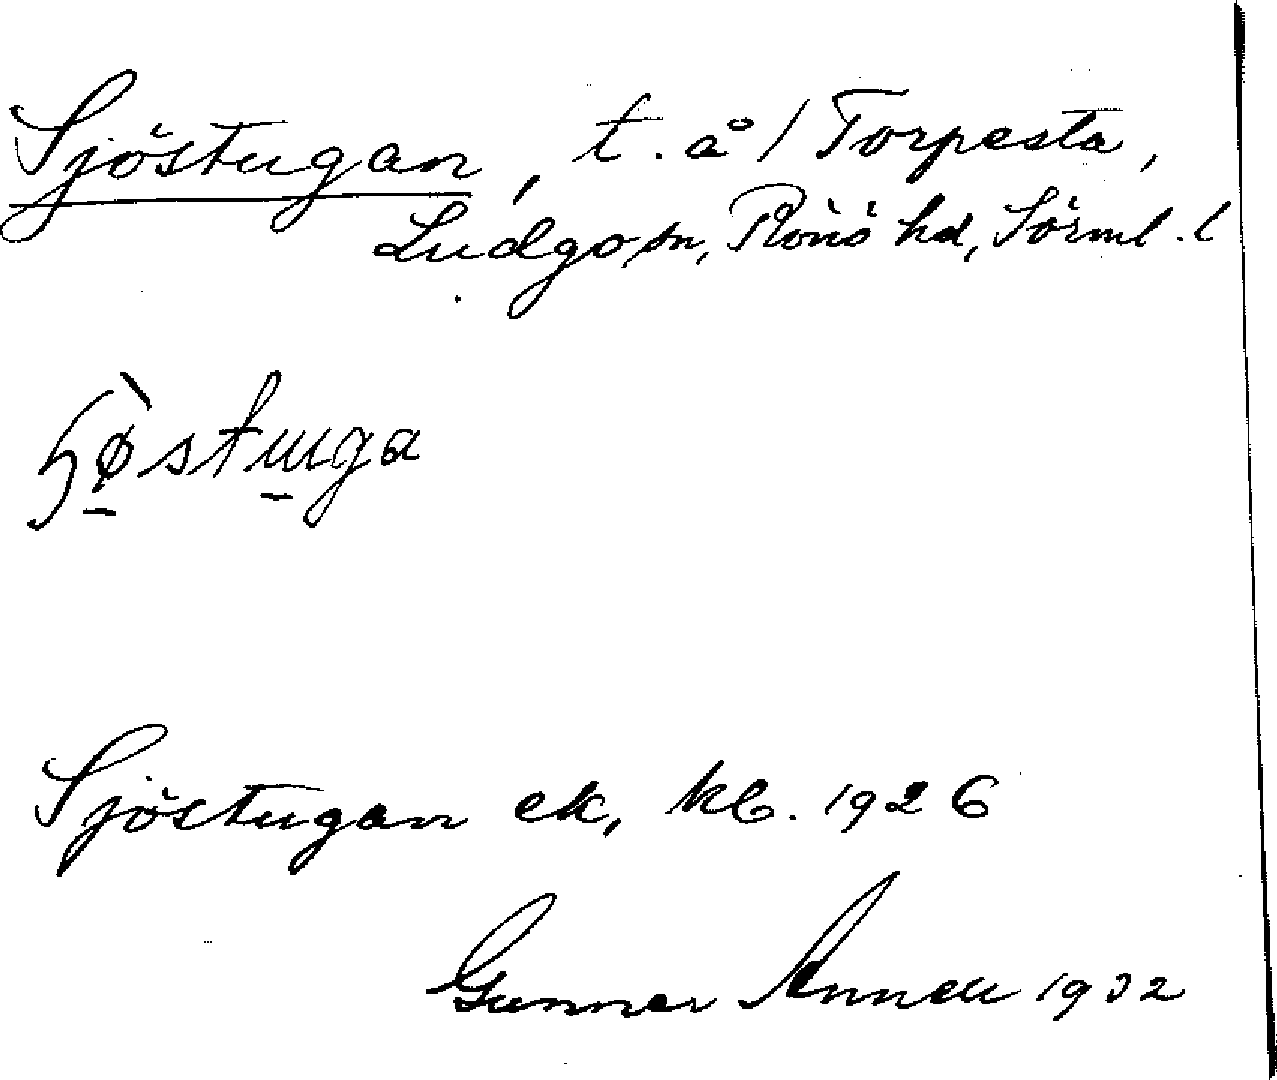 Sjöstugan, t. å / Torpesta,
Ludgo sn, Rönö hd, Sörml. l
Sjöstugan ek, kb. 1926
Gunnar Annell 1932